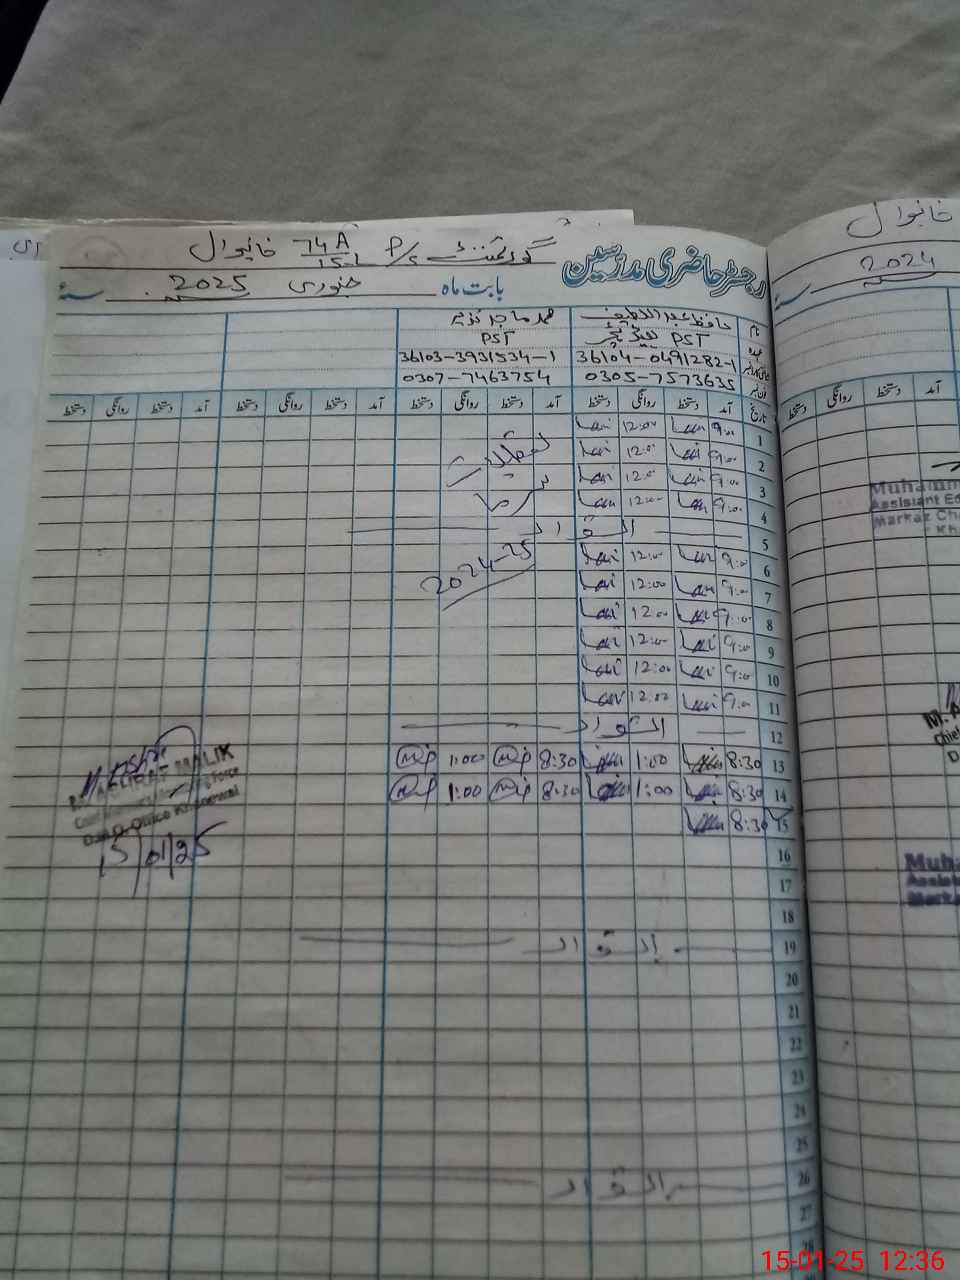 گورنمنٹ P/S 74A/15-L خانیوال
رجسٹر حاضری مدرسین
بابت ماہ جنوری 2025 سنہ
خانیوال
2024
نام حافظ عبداللطیف
عہدہ PST ہیڈ ٹیچر PST
36104-0491282-1 36103-3931534-1
0305-7573635 0307-7463754
تاریخ آمد دستخط روانگی دستخط آمد دستخط روانگی دستخط آمد دستخط روانگی دستخط آمد دستخط روانگی دستخط
روانگی دستخط
1 9:00 12:00
2 9:00 12:00
3 9:00 12:00
4 9:00 12:00
تعطیلات
سرما
2024-25
5 اتوار
6 9:00 12:00
7 9:00 12:00
8 9:00 12:00
9 9:00 12:00
10 9:00 12:00
11 9:00 12:00
12 اتوار
13 8:30 1:00 8:30 1:00
14 8:30 1:00 8:30 1:00
15 8:30
16
17
18
19 اتوار
20
21
22
23
24
25
26 اتوار
27
28
MALIK
15/01/25
Muhamm
Assistant Ed
Markaz Cha
Kh
M. A
Chief
D
Muha
Assista
Marka
15-01-25 12:36